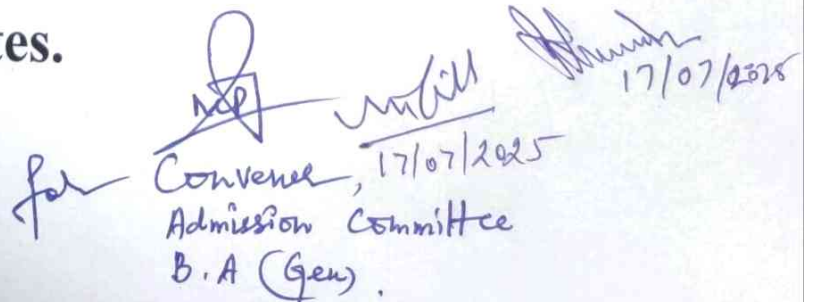 tes.
17/07/2025
for Convener, 17/07/2025
Admission Committee
B.A (Gen).